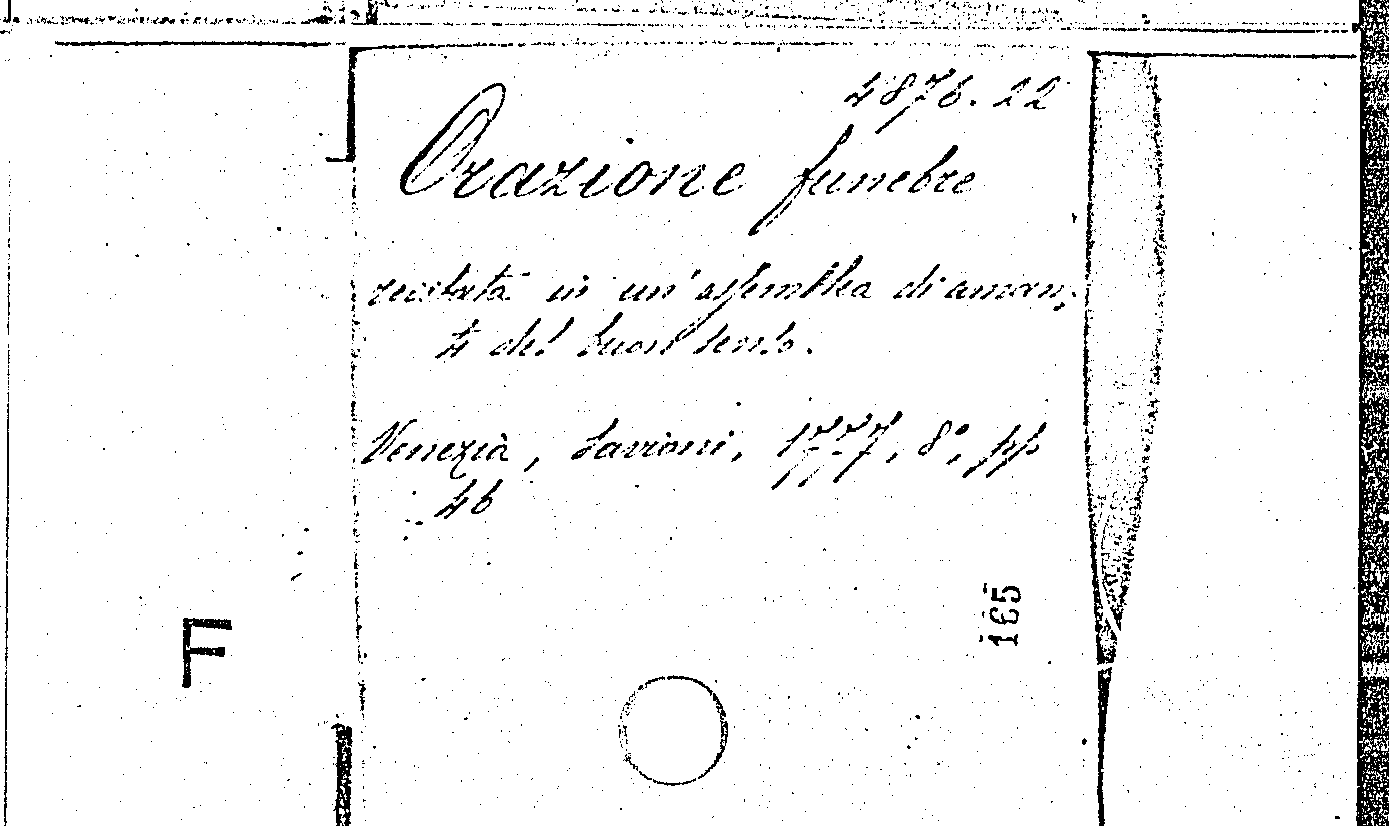 4876.22
Orazione funebre
recitata in un'assemblea di aman-
ti del buon senso.
Venezia, Savioni, 1777, 8°, pp
46
165
F